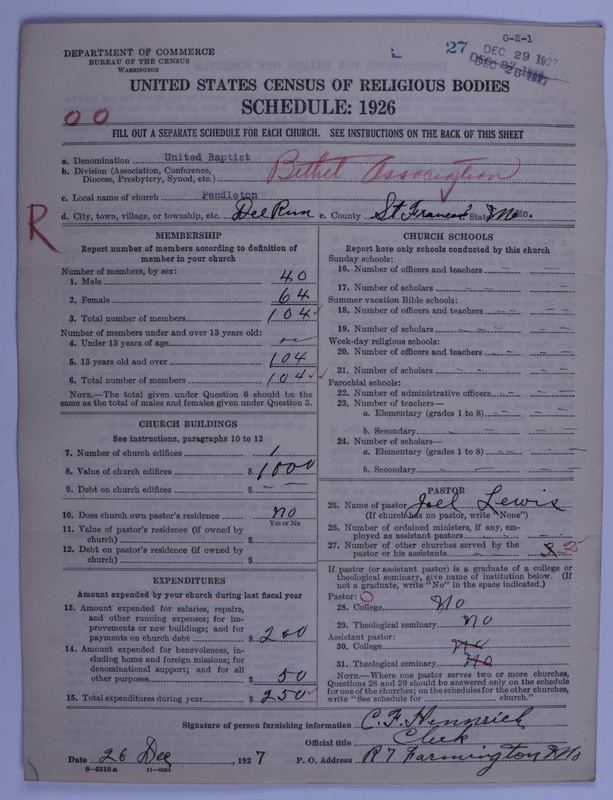 O-2-1
27 DEC 29 1927
DEPARTMENT OF COMMERCE
BUREAU OF THE CENSUS
WASHINGTON
UNITED STATES CENSUS OF RELIGIOUS BODIES
SCHEDULE: 1926
00
FILL OUT A SEPARATE SCHEDULE FOR EACH CHURCH. SEE INSTRUCTIONS ON THE BACK OF THIS SHEET
a. Denomination United Baptist
b. Division (Association, Conference, Diocese, Presbytery, Synod, etc.) Bethel Association
c. Local name of church Pendleton
d. City, town, village, or township, etc. Doe Run e. County St Francois State Mo.
R
MEMBERSHIP
Report number of members according to definition of member in your church
Number of members, by sex:
1. Male 40
2. Female 64
3. Total number of members 104 ✓
Number of members under and over 13 years old:
4. Under 13 years of age —
5. 13 years old and over 104
6. Total number of members 104 ✓✓
NOTE.—The total given under Question 6 should be the same as the total of males and females given under Question 3.
CHURCH BUILDINGS
See instructions, paragraphs 10 to 12
7. Number of church edifices 1
8. Value of church edifices $ 1000
9. Debt on church edifices $ — —
10. Does church own pastor's residence? no
Yes or No
11. Value of pastor's residence (if owned by church) $
12. Debt on pastor's residence (if owned by church) $
EXPENDITURES
Amount expended by your church during last fiscal year
13. Amount expended for salaries, repairs, and other running expenses; for improvements or new buildings; and for payments on church debt $ 200
14. Amount expended for benevolences, including home and foreign missions; for denominational support; and for all other purposes $ 50
15. Total expenditures during year $ 250 ✓
CHURCH SCHOOLS
Report here only schools conducted by this church
Sunday schools:
16. Number of officers and teachers — —
17. Number of scholars — —
Summer vacation Bible schools:
18. Number of officers and teachers — —
19. Number of scholars — —
Week-day religious schools:
20. Number of officers and teachers — —
21. Number of scholars — —
Parochial schools:
22. Number of administrative officers — —
23. Number of teachers—
a. Elementary (grades 1 to 8) — —
b. Secondary — —
24. Number of scholars—
a. Elementary (grades 1 to 8) — —
b. Secondary — —
PASTOR
25. Name of pastor Joel Lewis
(If church has no pastor, write "None")
26. Number of ordained ministers, if any, employed as assistant pastors
27. Number of other churches served by the pastor or his assistants 2
If pastor (or assistant pastor) is a graduate of a college or theological seminary, give name of institution below. (If not a graduate, write "No" in the space indicated.)
Pastor: O
28. College No
29. Theological seminary no
Assistant pastor:
30. College No
31. Theological seminary No
NOTE.—Where one pastor serves two or more churches, Questions 28 and 29 should be answered only on the schedule for one of the churches; on the schedules for the other churches, write "See schedule for church."
Signature of person furnishing information C. F. Hennrich
Official title Clerk
Date 26 Dec, 1927 P. O. Address R 7 Farmington Mo
8-5518a 11-9051